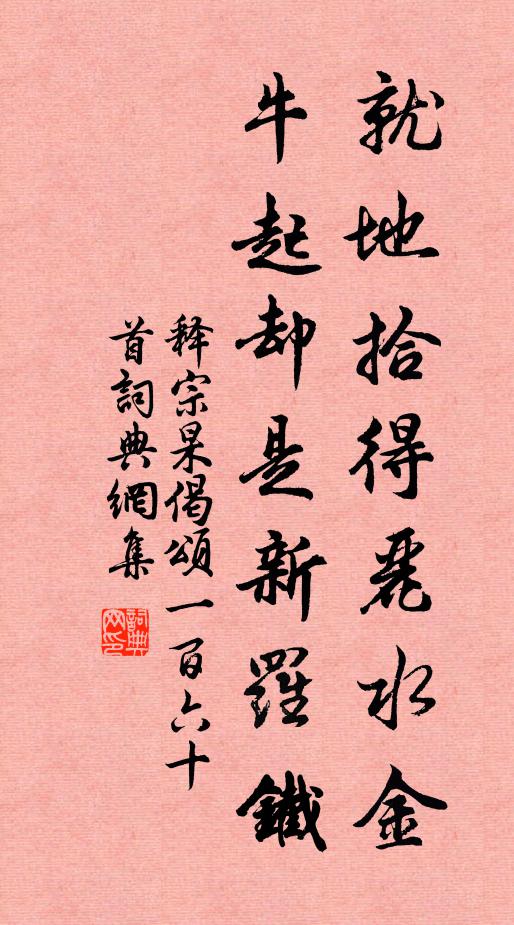 就地拾得麗水金
牛起却是新羅鐵
释宗杲偈頌一百六十
首詞典網集
詞典網印